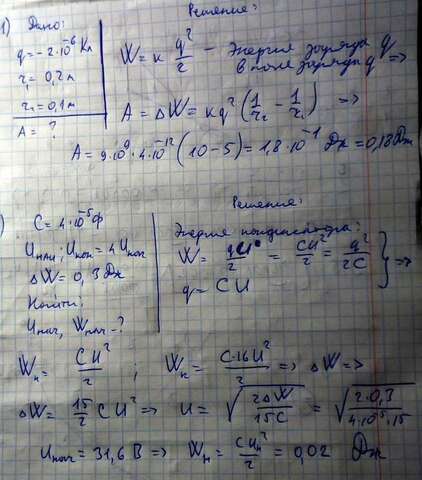 1) Дано: Решение:
q = -2·10⁻⁶ Кл
r₁ = 0,2 м
r₂ = 0,1 м
A = ?
W = k q²/r - Энергия заряда q
в поле заряда q =>
A = ΔW = kq² (1/r₂ - 1/r₁) =>
A = 9·10⁹·4·10⁻¹² (10-5) = 1,8·10⁻¹ Дж = 0,18 Дж
) C = 4·10⁻⁵ Ф Решение:
Uнач; Uкон = 4 Uнач
ΔW = 0,3 Дж
Найти:
Uнач, Wнач - ?
Энергия конденсатора:
W = qU/2 = CU²/2 = q²/2C
q = CU } =>
Wн = CU²/2 ; Wк = C·16U²/2 => ΔW =>
ΔW = 15/2 CU² => U = √(2ΔW/15C) = √(2·0,3/4·10⁻⁵·15)
Uнач = 31,6 В => Wн = CUн²/2 = 0,02 Дж